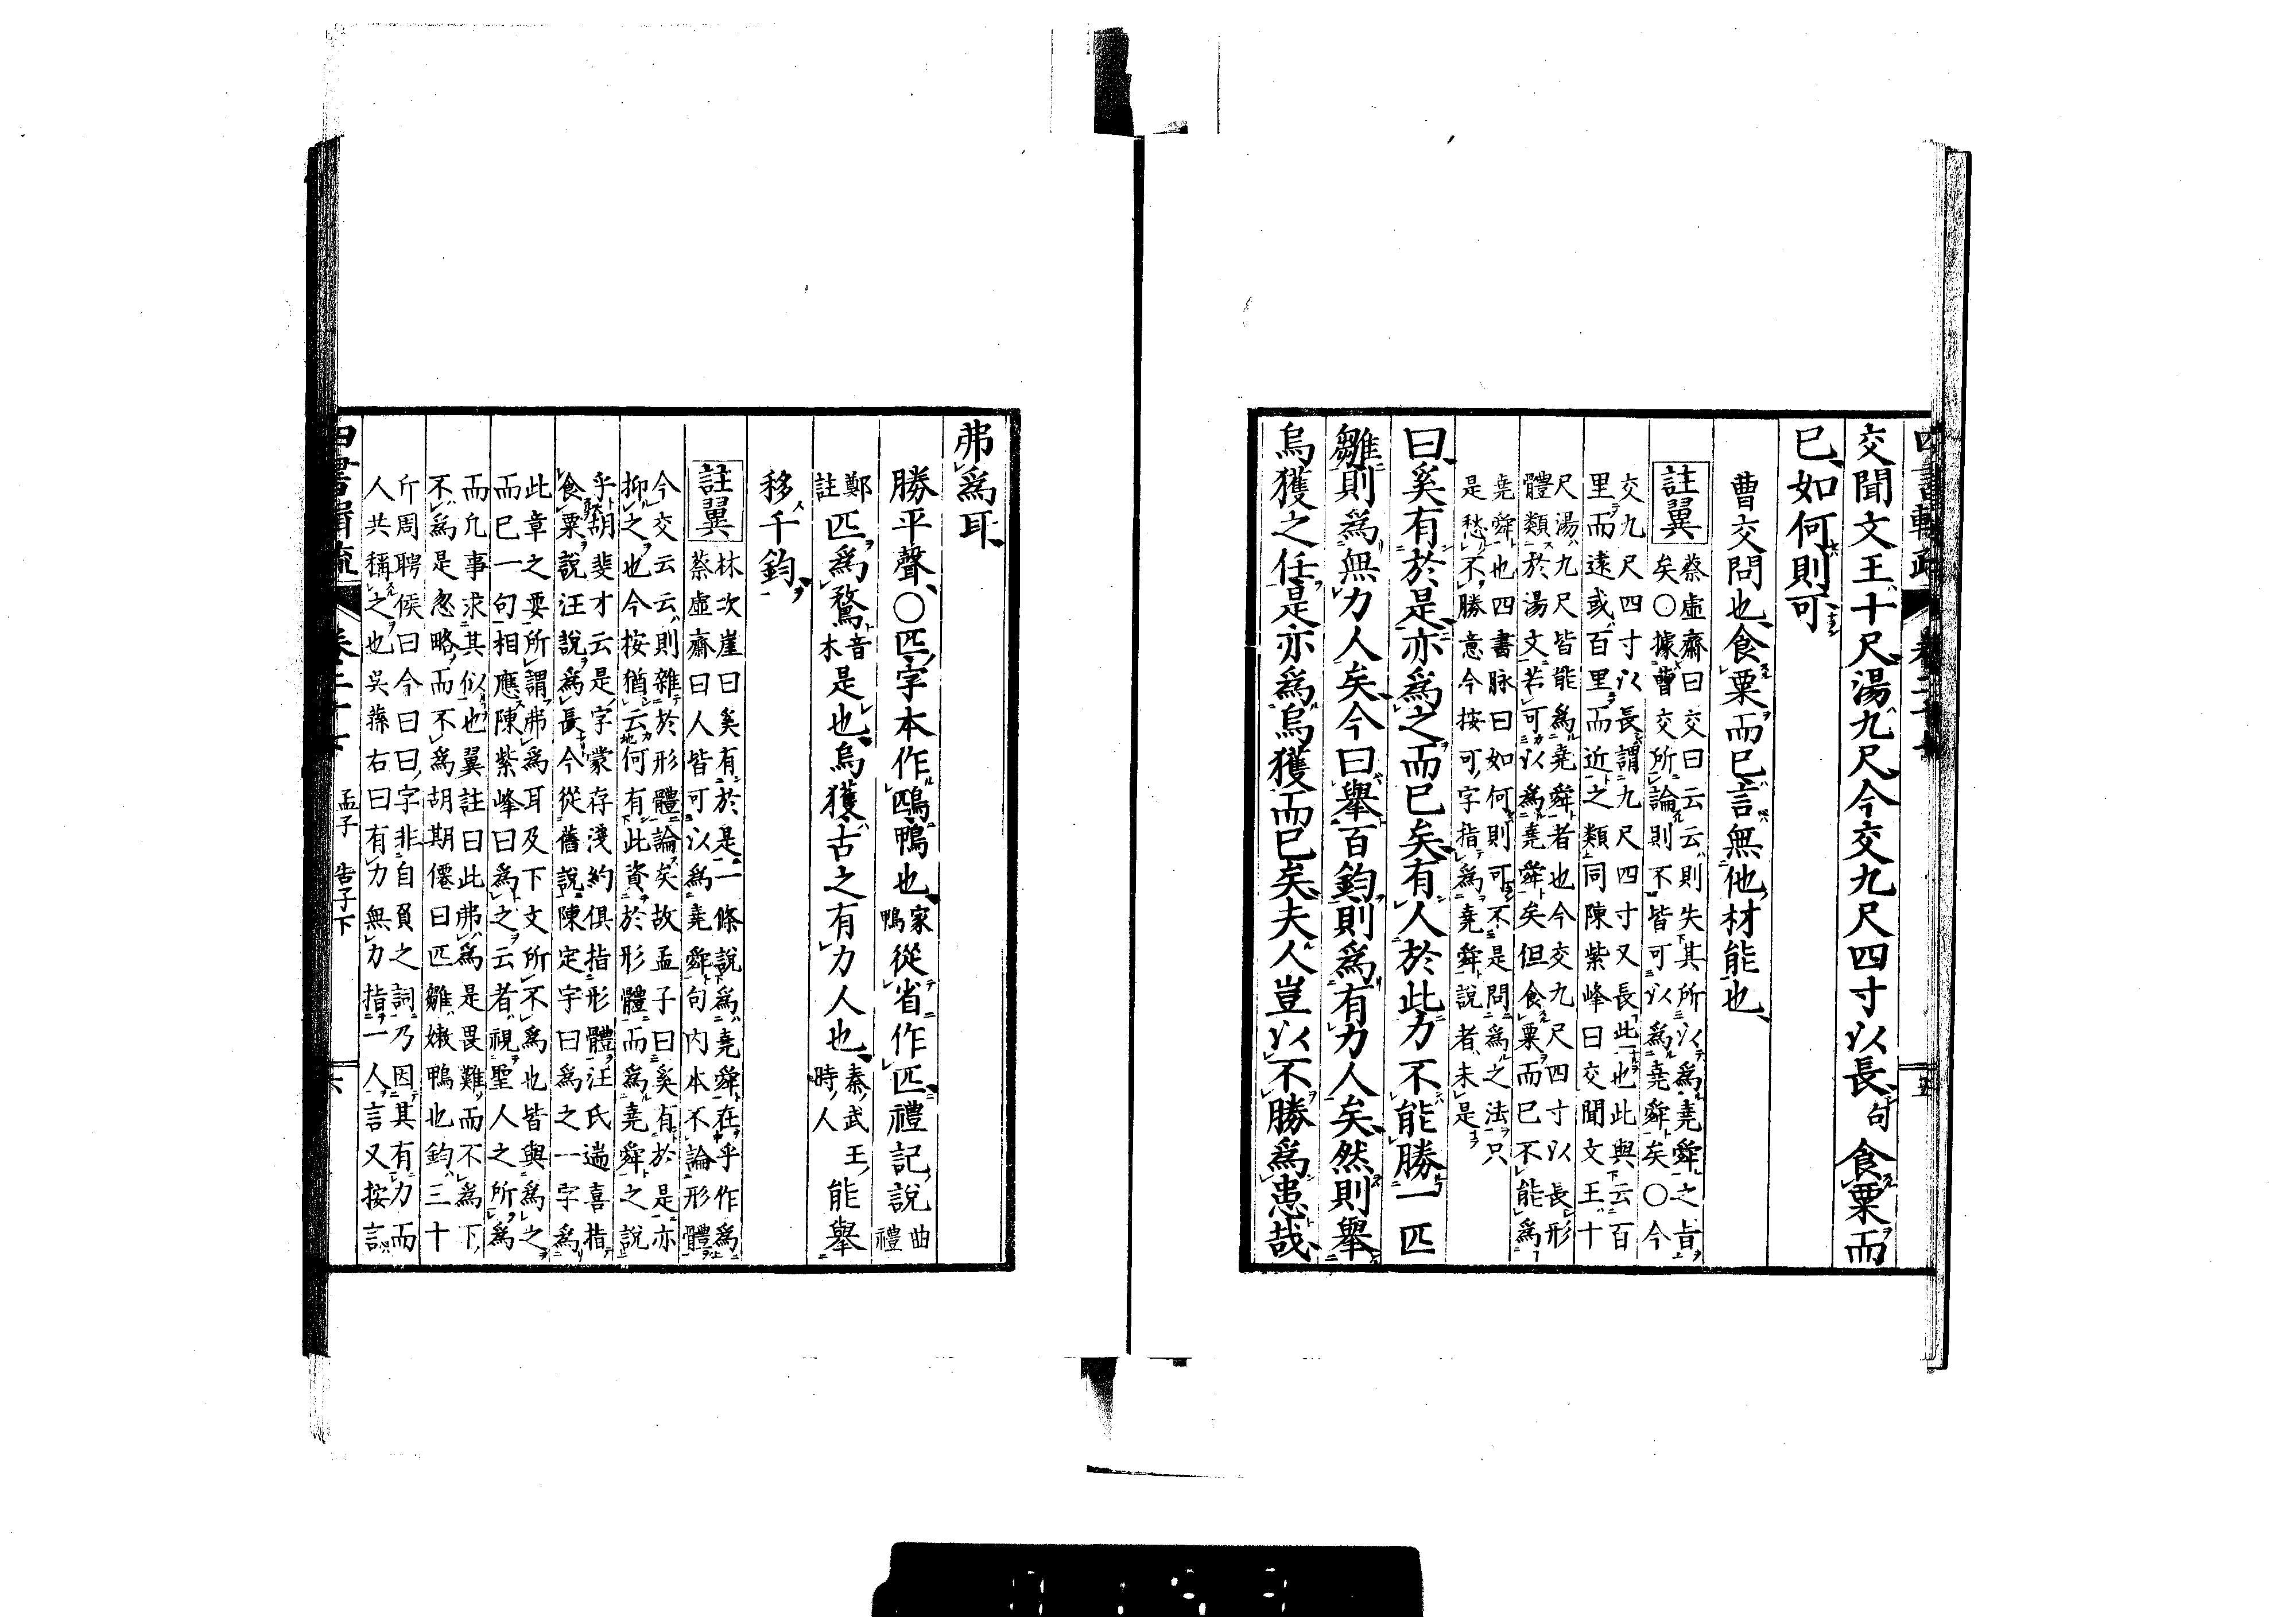 交聞文王十尺湯九尺今交九尺四寸以長句食粟而
已如何則可
曹交問也食粟而已言無他材能也
註翼
蔡虛齋曰交曰云云則失其所以為堯舜之旨
矣○據曹交所論則不皆可以為堯舜矣○今
交九尺四寸以長謂九尺四寸又長此也此與云百
里而遠或百里而近之類同陳紫峰曰交聞文王十
尺湯九尺皆能為堯舜者也今交九尺四寸以長形
體類於湯文若可以為堯舜矣但食粟而已不能為
堯舜也四書脉曰如何則可不是問為之法只
是愁不勝意今按可字指為堯舜說者未是
曰奚有於是亦為之而已矣有人於此力不能勝一匹
雛則為無力人矣今曰舉百鈞則為有力人矣然則舉
烏獲之任是亦為烏獲而已矣夫人豈以不勝為患哉
弗為耳
勝平聲○匹字本作鴄鴨也家鴨從省作匹禮記說曲禮
鄭註匹為鶩音木是也烏獲古之有力人也秦武王時人能舉
移千鈞
註翼
林次崖曰奚有於是二條說為堯舜在乎作為
蔡虛齋曰人皆可以為堯舜句內本不論形體
今交云云則雜於形體論矣故孟子曰奚有於是亦
抑之也今按猶云何有此資於形體而為堯舜之說
乎胡斐才云是字蒙存淺約俱指形體汪氏遄喜指
食粟說汪說為長今從舊說陳定宇曰為之一字為
此章之要所謂弗為耳及下文所不為也皆與為之
而已一句相應陳紫峰曰為之云者視聖人之所為
而凡事求其似也翼註曰此弗為是畏難而不為下
不為是忽略而不為胡期僊曰匹雛嫩鴨也鈞三十
斤周聘侯曰今曰曰字非自負之詞乃因其有力而
人共稱之也吳蓀右曰有力無力指一人言又按言
孟子 告子下